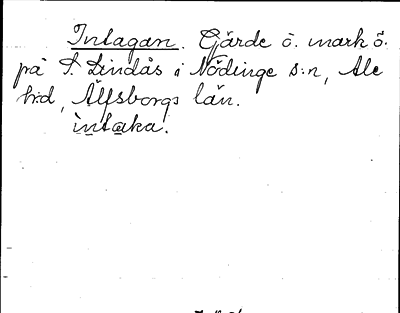 Intagan. Gärde o. mark ö.
på S. Lindås i Nödinge s:n, Ale
hd, Älfsborgs län.
ìntaka.